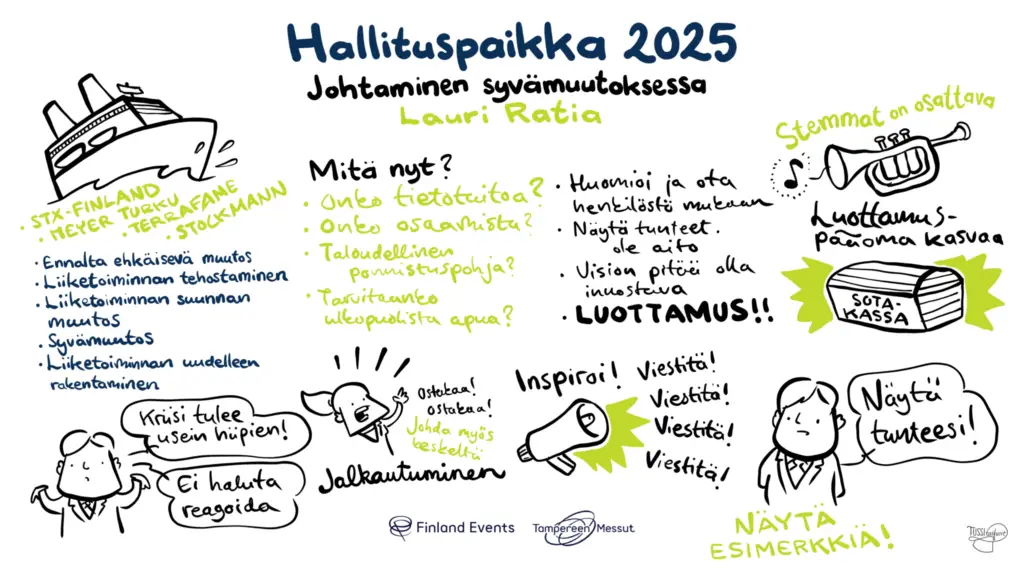 Hallituspaikka 2025
Johtaminen syvämuutoksessa
Lauri Ratia
• STX-FINLAND
• MEYER TURKU
• TERRAFAME
• STOCKMANN
• Ennalta ehkäisevä muutos
• Liiketoiminnan tehostaminen
• Liiketoiminnan suunnan
muutos
• Syvämuutos
• Liiketoiminnan uudelleen
rakentaminen
Mitä nyt?
• Onko tietotaitoa?
• Onko osaamista?
• Taloudellinen
ponnistuspohja?
• Tarvitaanko
ulkopuolista apua?
• Huomioi ja ota
henkilöstö mukaan
• Näytä tunteet.
ole aito
• Vision pitää olla
innostava
• LUOTTAMUS!!
Stemmat on osattava
Luottamus-
pääoma kasvaa
SOTA-
KASSA
Kriisi tulee
usein hiipien!
Ei haluta
reagoida
Ostakaa!
Ostakaa!
Johda myös
keskeltä
Jalkautuminen
Inspiroi!
Viestitä!
Viestitä!
Viestitä!
Viestitä!
Näytä
tunteesi!
NÄYTÄ
ESIMERKKIÄ!
Finland Events
Tampereen Messut